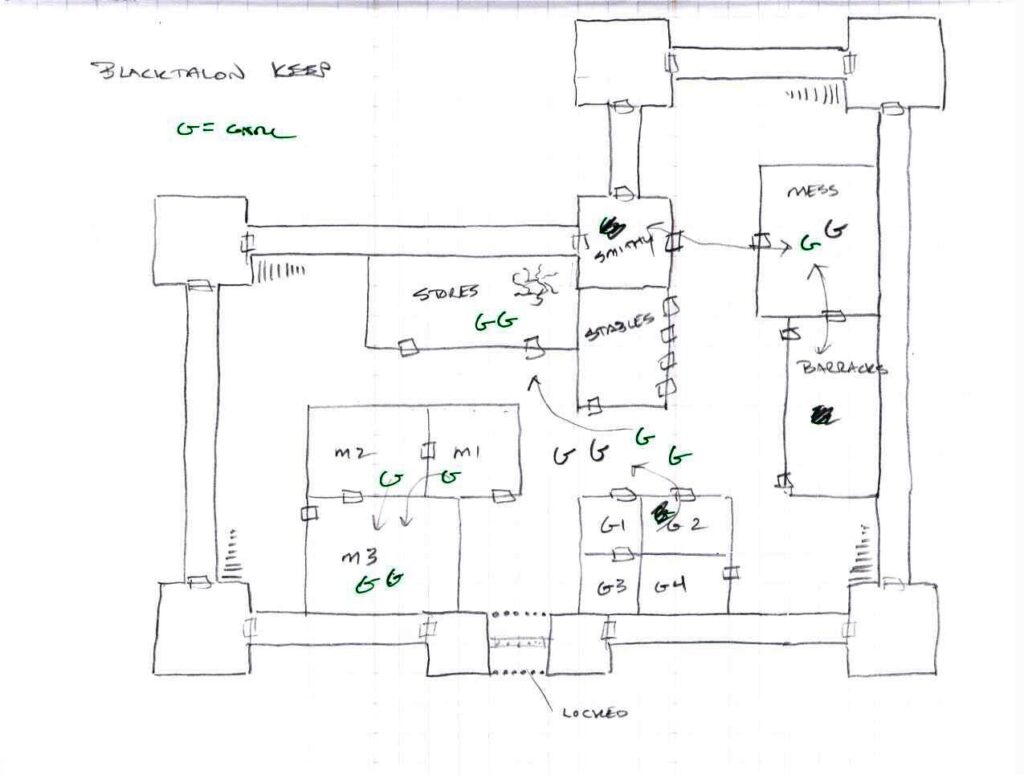 BLACKTALON KEEP
G = GNOLL
MESS
G G
SMITHY
STORES
G G
STABLES
BARRACKS
M2 M1
G G
G G G
G
G1 G2
M3
G G
G3 G4
LOCKED